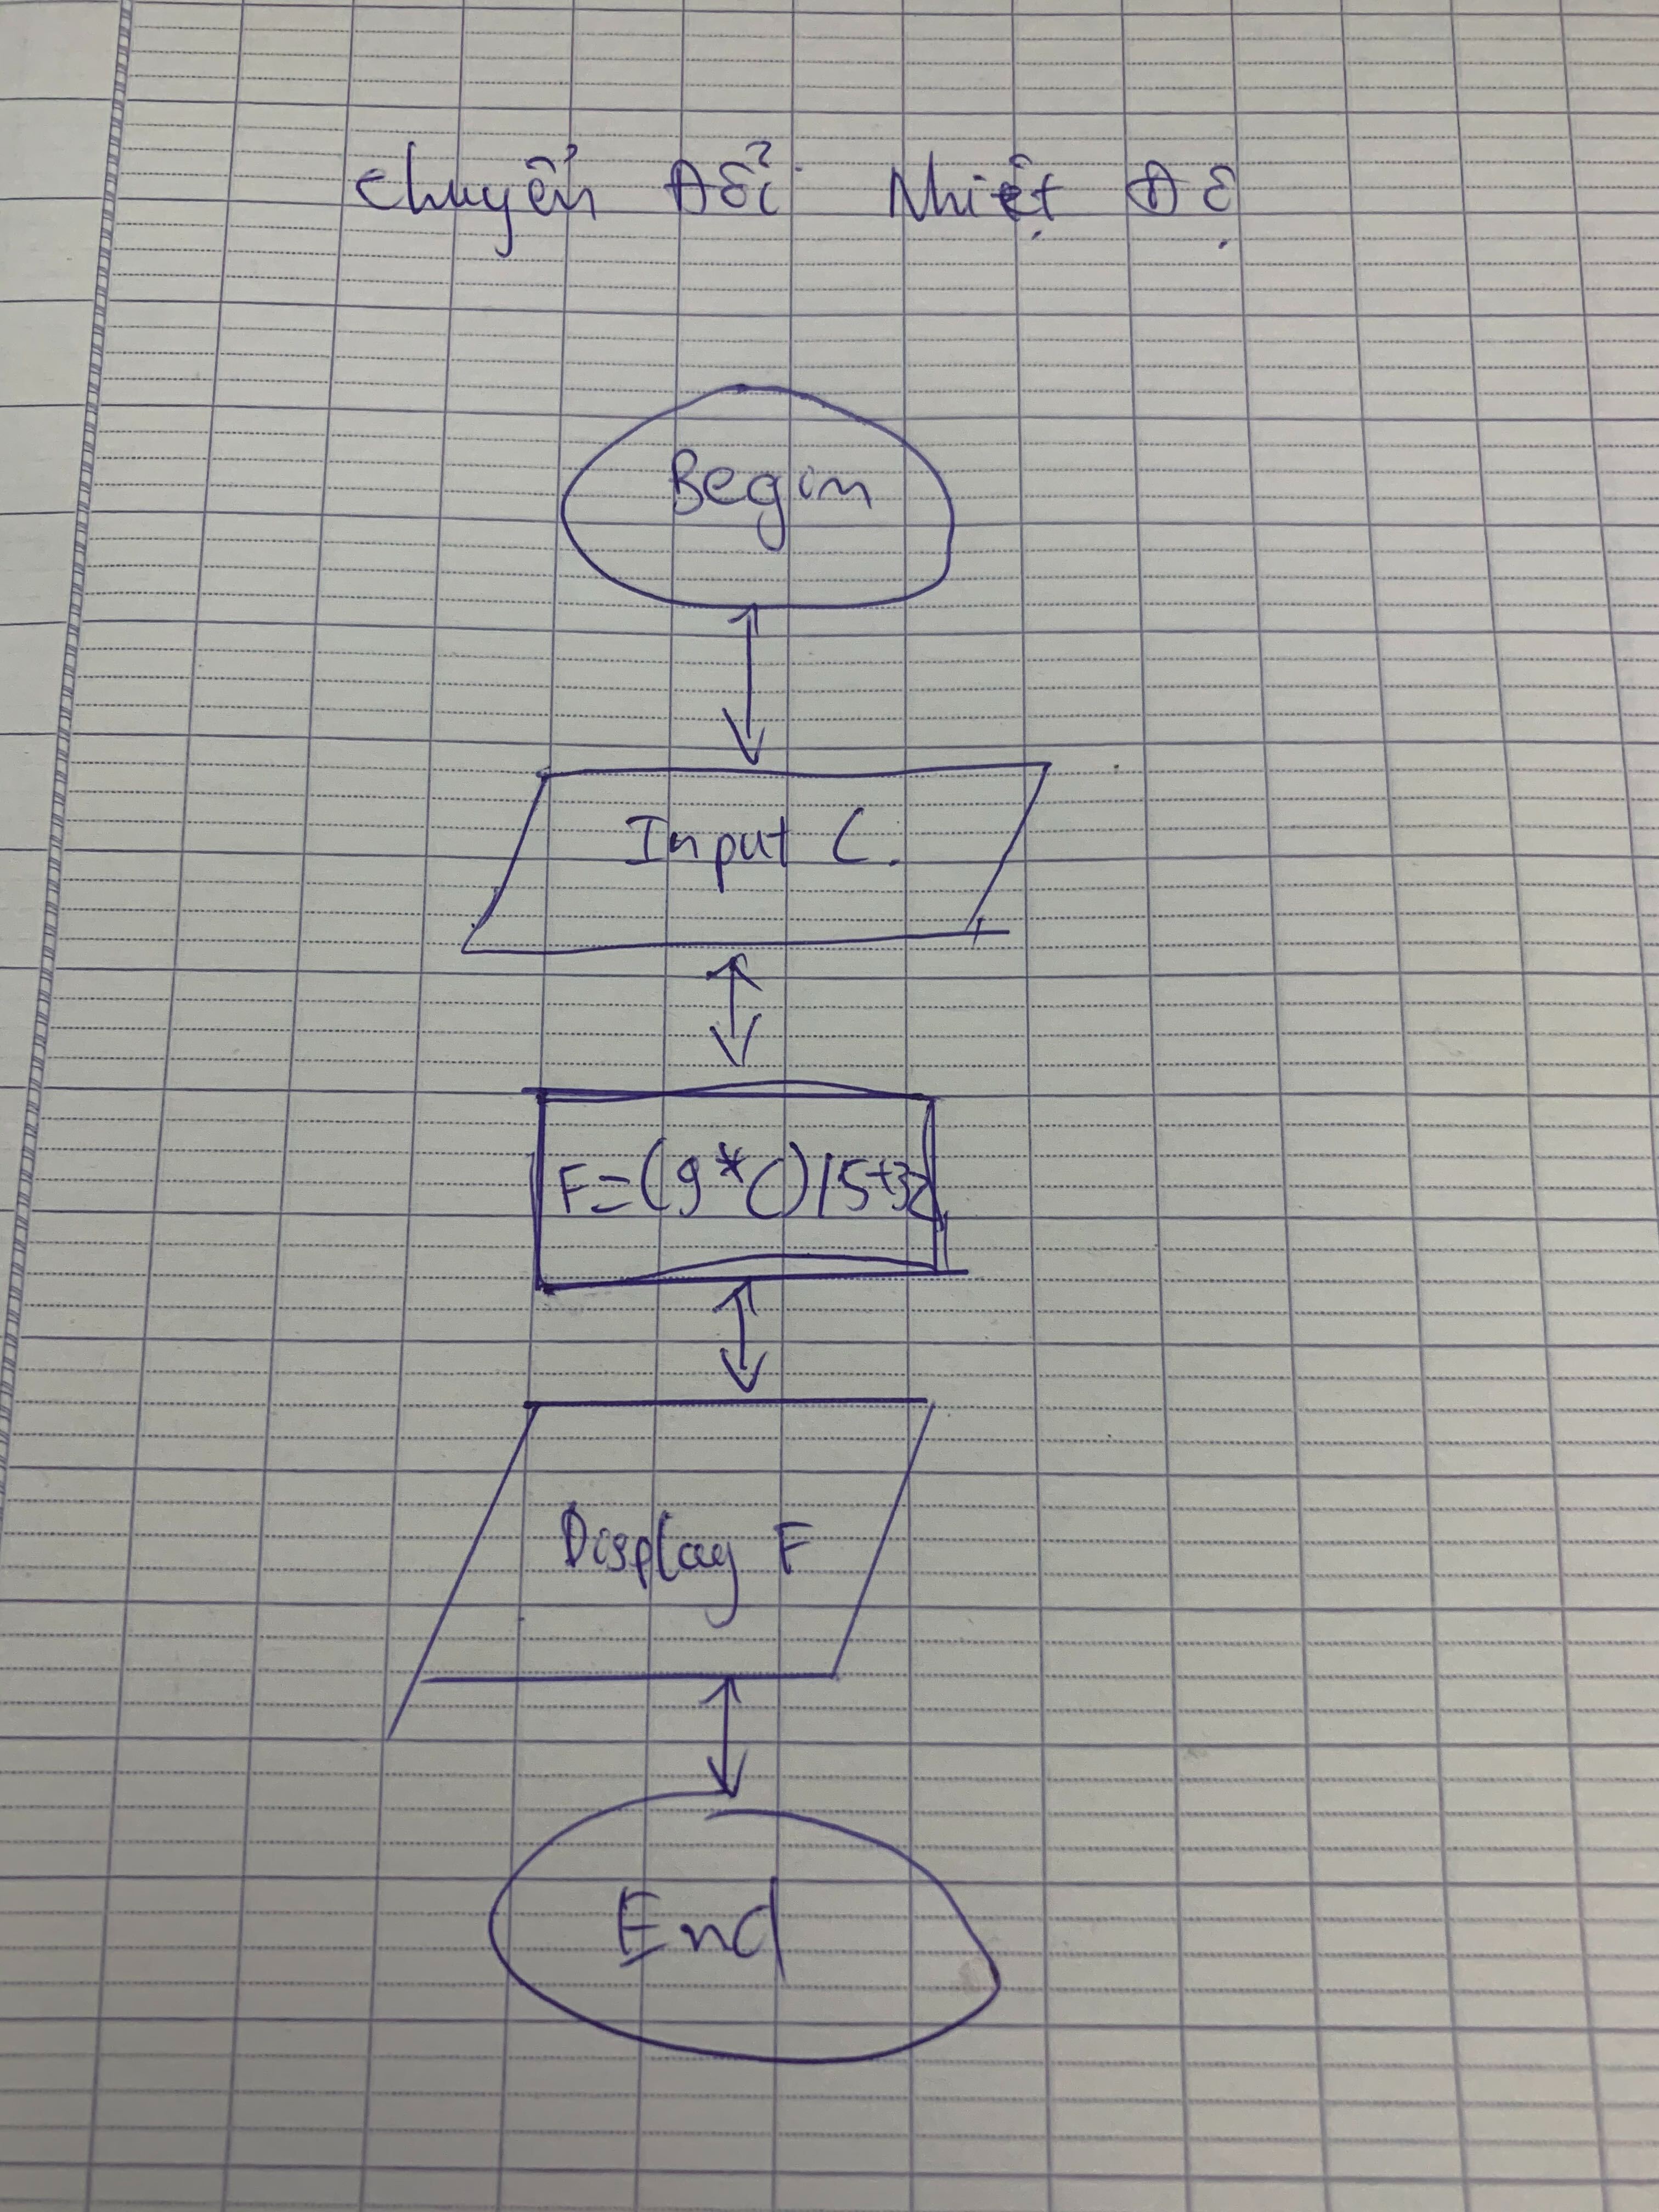 Chuyển Đổi Nhiệt Độ
Begin
Input C.
F=(9*C)/5+32
Display F
End